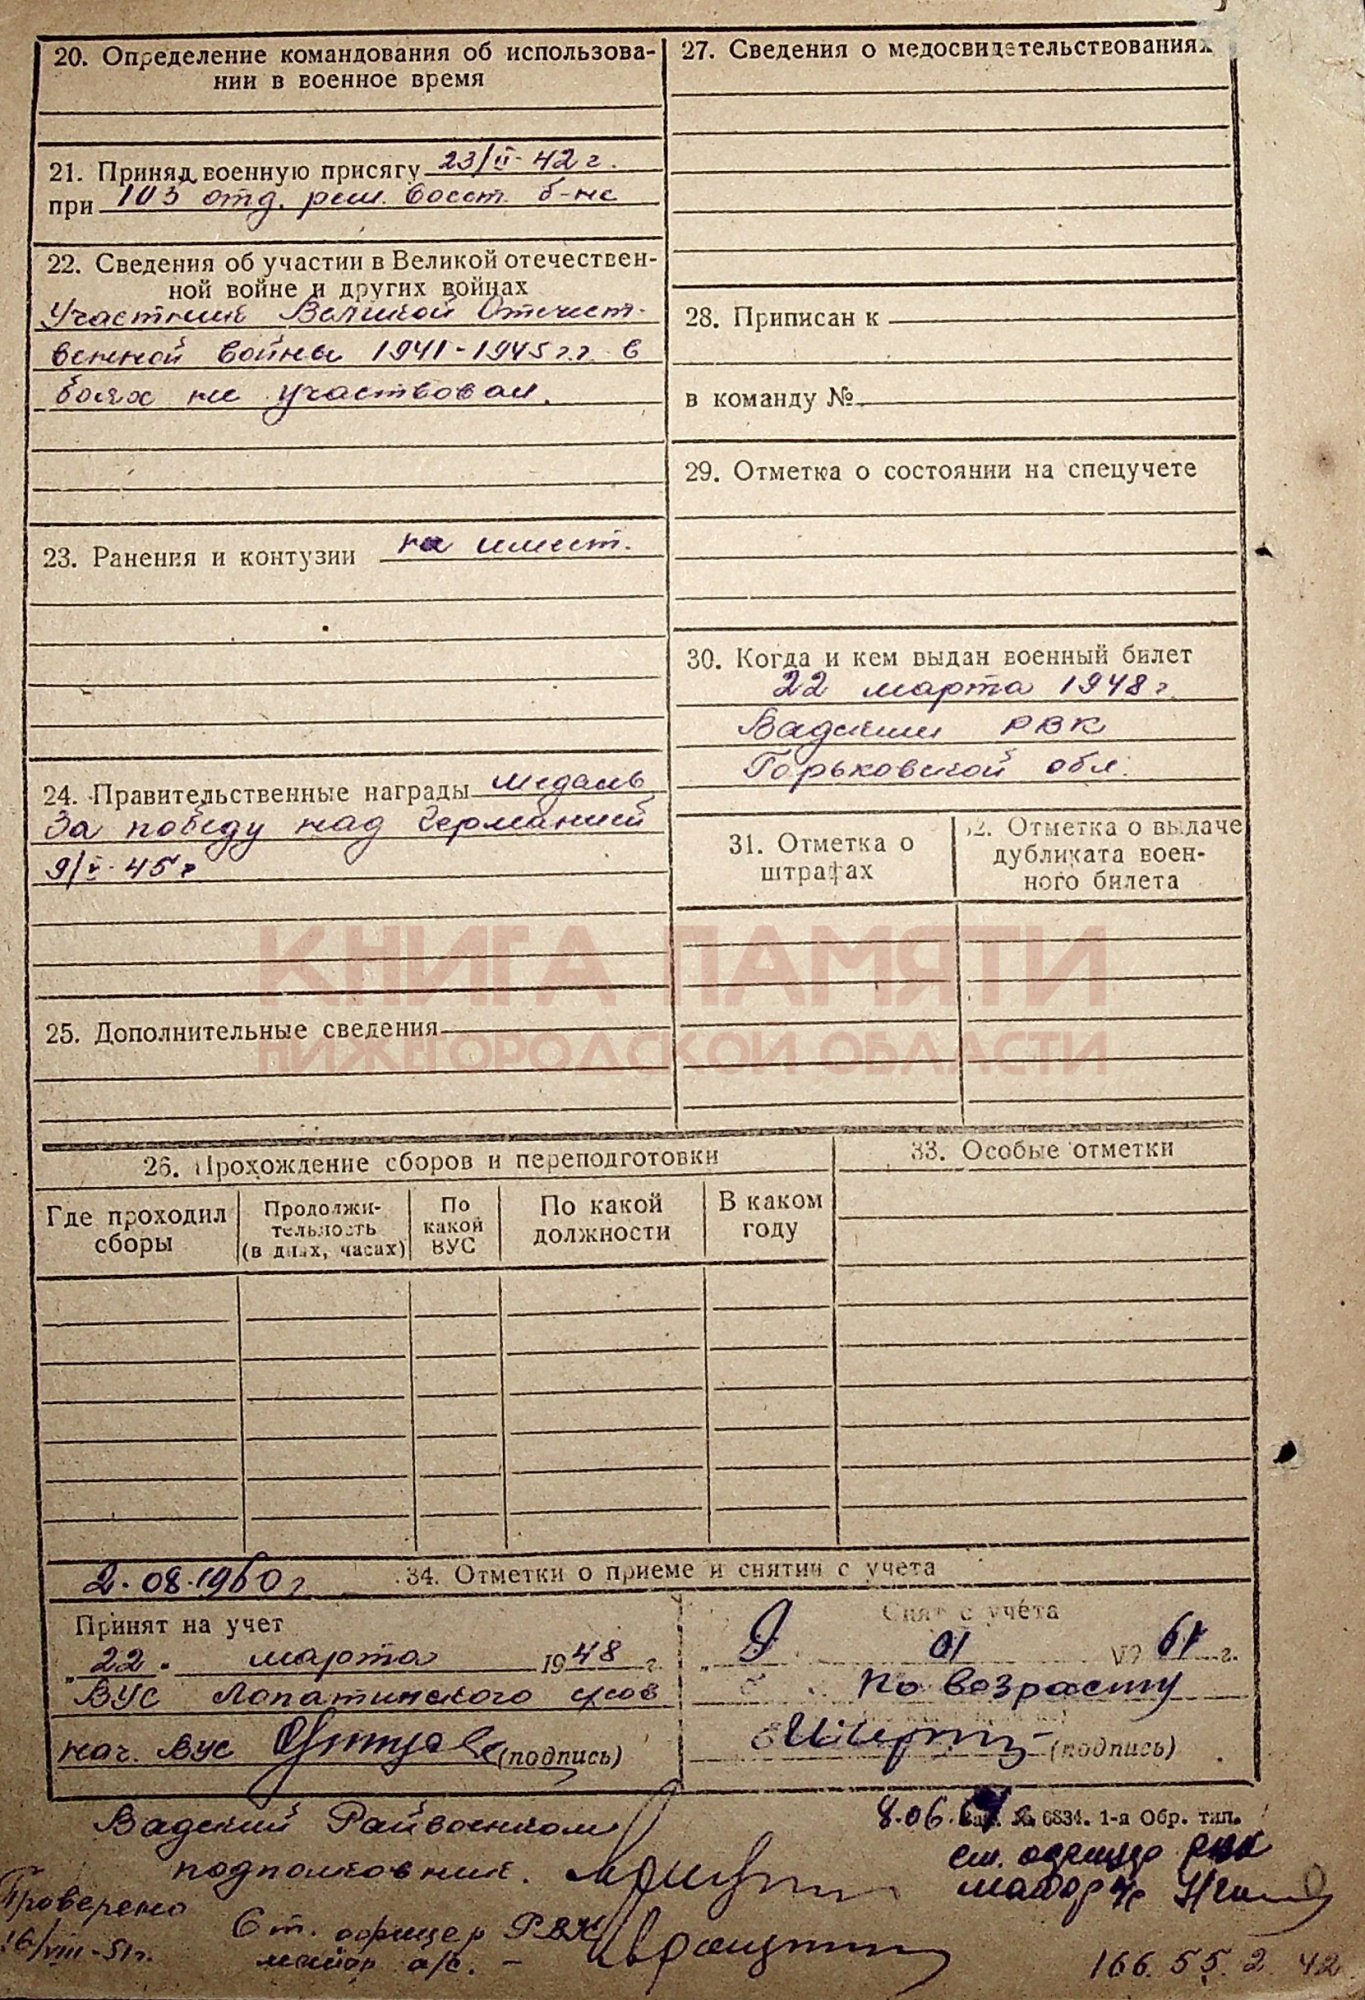 20. Определение командования об использова-
нии в военное время
21. Принял военную присягу 23/II-42 г.
при 103 отд. рем. восст. б-не
22. Сведения об участии в Великой отечествен-
ной войне и других войнах
Участник Великой Отечест-
венной войны 1941-1945 г.г. в
боях не участвовал.
23. Ранения и контузии не имеет.
24. Правительственные награды Медаль
За победу над Германией
9/V-45 г
25. Дополнительные сведения
27. Сведения о медосвидетельствованиях
28. Приписан к
в команду №
29. Отметка о состоянии на спецучете
30. Когда и кем выдан военный билет
22 марта 1948 г.
Вадским РВК
Горьковской обл.
31. Отметка о
штрафах
32. Отметка о выдаче
дубликата воен-
ного билета
КНИГА ПАМЯТИ
НИЖЕГОРОДСКОЙ ОБЛАСТИ
26. Прохождение сборов и переподготовки
Где проходил
сборы
Продолжи-
тельность
(в днях, часах)
По
какой
ВУС
По какой
должности
В каком
году
33. Особые отметки
2.08.1960 г
34. Отметки о приеме и снятии с учета
Принят на учет
"22" марта 1948 г.
ВУС Лопатинского
нач. ВУС (подпись)
Снят с учёта
9 01 61 г.
по возрасту
(подпись)
Вадский Райвоенком
подполковник.
8.06. № 6834. 1-я Обр. тип.
ст. офицер РВК
майор
Проверено
16/VIII-51г.
Ст. офицер РВК
майор а/с. -
166. 55. 2 42